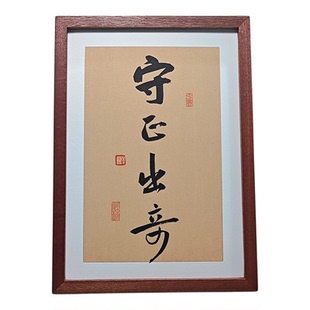 守正出奇